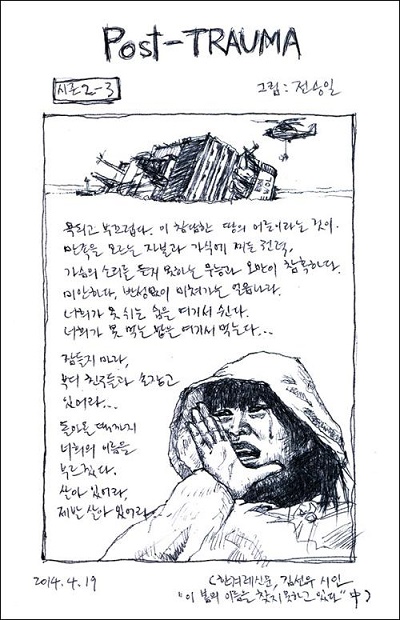 Post-TRAUMA
시즌2-3
그림: 전승일
욕되고 부끄럽다. 이 참담한 땅의 어른이라는 것이.
만족을 모르는 자본과 가식에 찌든 권력,
가슴의 소리를 듣지 못하는 무능과 오만이 참혹하다.
미안하다, 반성없이 미쳐가는 얼음나라.
너희가 못 쉬는 숨을 여기서 쉰다.
너희가 못 먹는 밥을 여기서 먹는다...
잠들지 마라,
부디 친구들과 손잡고
있어라...
돌아올 때까지
너희의 이름을
부르겠다.
살아 있어라,
제발 살아 있어라...
2014.4.19
(한겨레신문, 김선우 시인
"이 봄의 이름을 찾지 못하고 있다" 中)